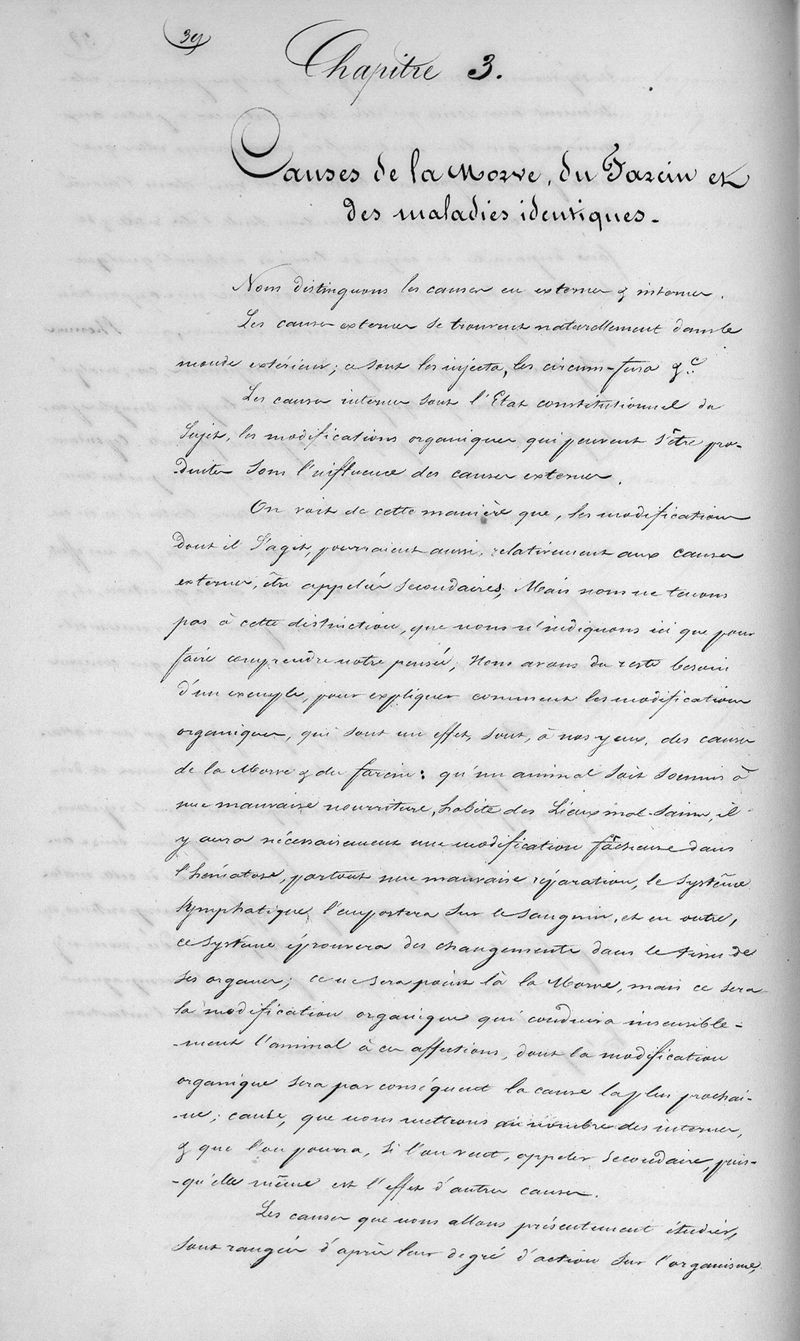 39
Chapitre 3.
Causes de la Morve, du Farcin et
des maladies identiques.
Nous distinguons les causes en externes & internes.
Les causes externes se trouvent naturellement dans le
monde extérieur; ce sont les injecta, les circum-fusa &c.
Les causes internes sont l'Etat constitutionnel du
Sujet, les modifications organiques qui peuvent s'être pro-
-duites sous l'influence des causes externes.
On voit de cette manière que, les modifications
dont il s'agit, pourraient aussi, relativement aux causes
externes, être appelées secondaires; Mais nous ne tenons
pas à cette distinction, que nous n'indiquons ici que pour
faire comprendre notre pensée; Nous avons du reste besoin
d'un exemple, pour expliquer comment les modifications
organiques, qui sont un effet, sont, à nos yeux, des causes
de la Morve & du farcin: qu'un animal soit soumis à
une mauvaise nourriture, habite des Lieux mal-sains, il
y aura nécessairement une modification fâcheuse dans
l'hématose, partout une mauvaise réparation, le système
lymphatique l'emportera sur le sanguin, et en outre,
ce système éprouvera des changements dans le tissu de
ses organes; ce ne sera point là la Morve, mais ce sera
la modification organique qui conduira insensible-
-ment l'animal à ces affections, dont la modification
organique sera par conséquent la cause la plus prochai-
-ne; cause, que nous mettrons au nombre des internes,
& que l'on pourra, si l'on veut, appeler secondaire, puis-
-qu'elle même est l'effet d'autres causes.
Les causes que nous allons présentement étudier,
sont rangées d'après leur degré d'action sur l'organisme,